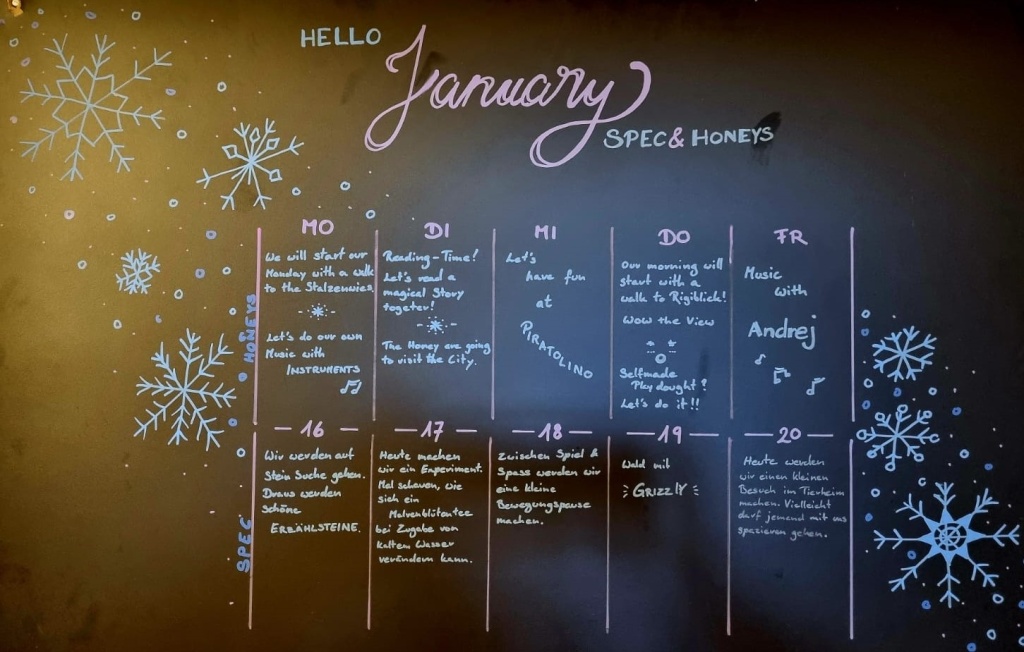 HELLO
January
SPEC & HONEYS
MO
DI
MI
DO
FR
HONEYS
We will start our
Monday with a walk
to the Stalzenwies.
Let's do our own
Music with
INSTRUMENTS
Reading-Time!
Let's read a
magical Story
togeter!
The Honey are going
to visit the City.
Let's
have fun
at
PIRATOLINO
Our morning will
start with a
walk to Rigiblick!
Wow the View
Selfmade
Play dought?
Let's do it!!
Music
with
Andrej
16
17
18
19
20
SPEC
Wir werden auf
Stein Suche gehen.
Draus werden
schöne
ERZÄHLSTEINE.
Heute machen
wir ein Experiment.
Mal schauen, wie
sich ein
Malvenblütentee
bei Zugabe von
kaltem Wasser
verändern kann.
Zwischen Spiel &
Spass werden wir
eine kleine
Bewegungspause
machen.
Wald mit
GRIZZLY
Heute werden
wir einen kleinen
Besuch im Tierheim
machen. Vielleicht
darf jemand mit uns
spazieren gehen.